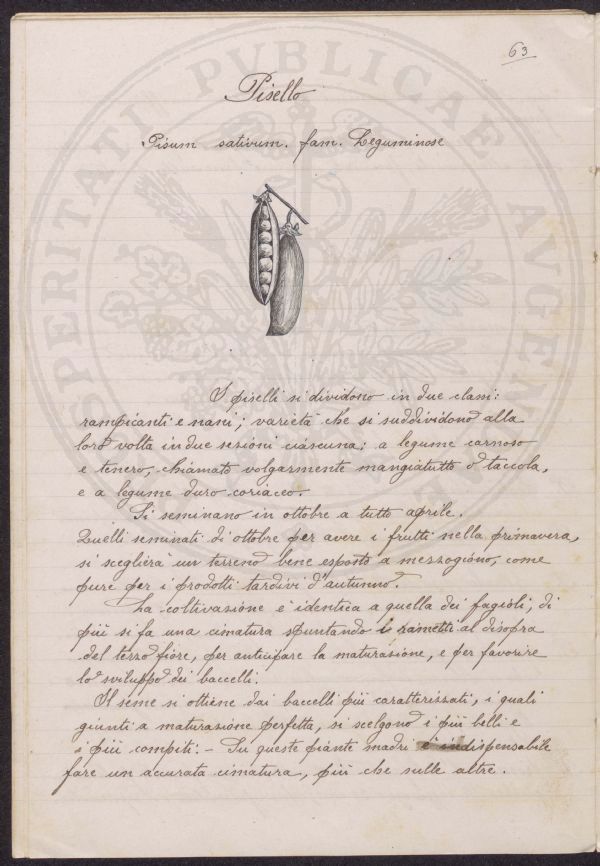 63
Pisello
Pisum sativum. fam. Leguminose
I piselli si dividono in due classi:
rampicanti e nani; varietà che si suddividono alla
loro volta in due sezioni ciascuna: a legume carnoso
e tenero, chiamato volgarmente mangiatutto o taccola,
e a legume duro coriaceo.
Si seminano in ottobre a tutto aprile.
Quelli seminati di ottobre per avere i frutti nella primavera,
si sceglierà un terreno bene esposto a mezzogiono, come
pure per i prodotti tardivi d'autunno.
La coltivazione è identica a quella dei fagioli, di
più si fa una cimatura spuntando i rametti al disopra
del terzo fiore, per anticipare la maturazione, e per favorire
lo sviluppo dei baccelli.
Il seme si ottiene dai baccelli più caratterizzati, i quali
giunti a maturazione perfetta, si scelgono i più belli e
i più compiti: - Su queste piante madri è indispensabile
fare un accurata cimatura, più che sulle altre.
SPERITATI PVBLICAE AVGEN